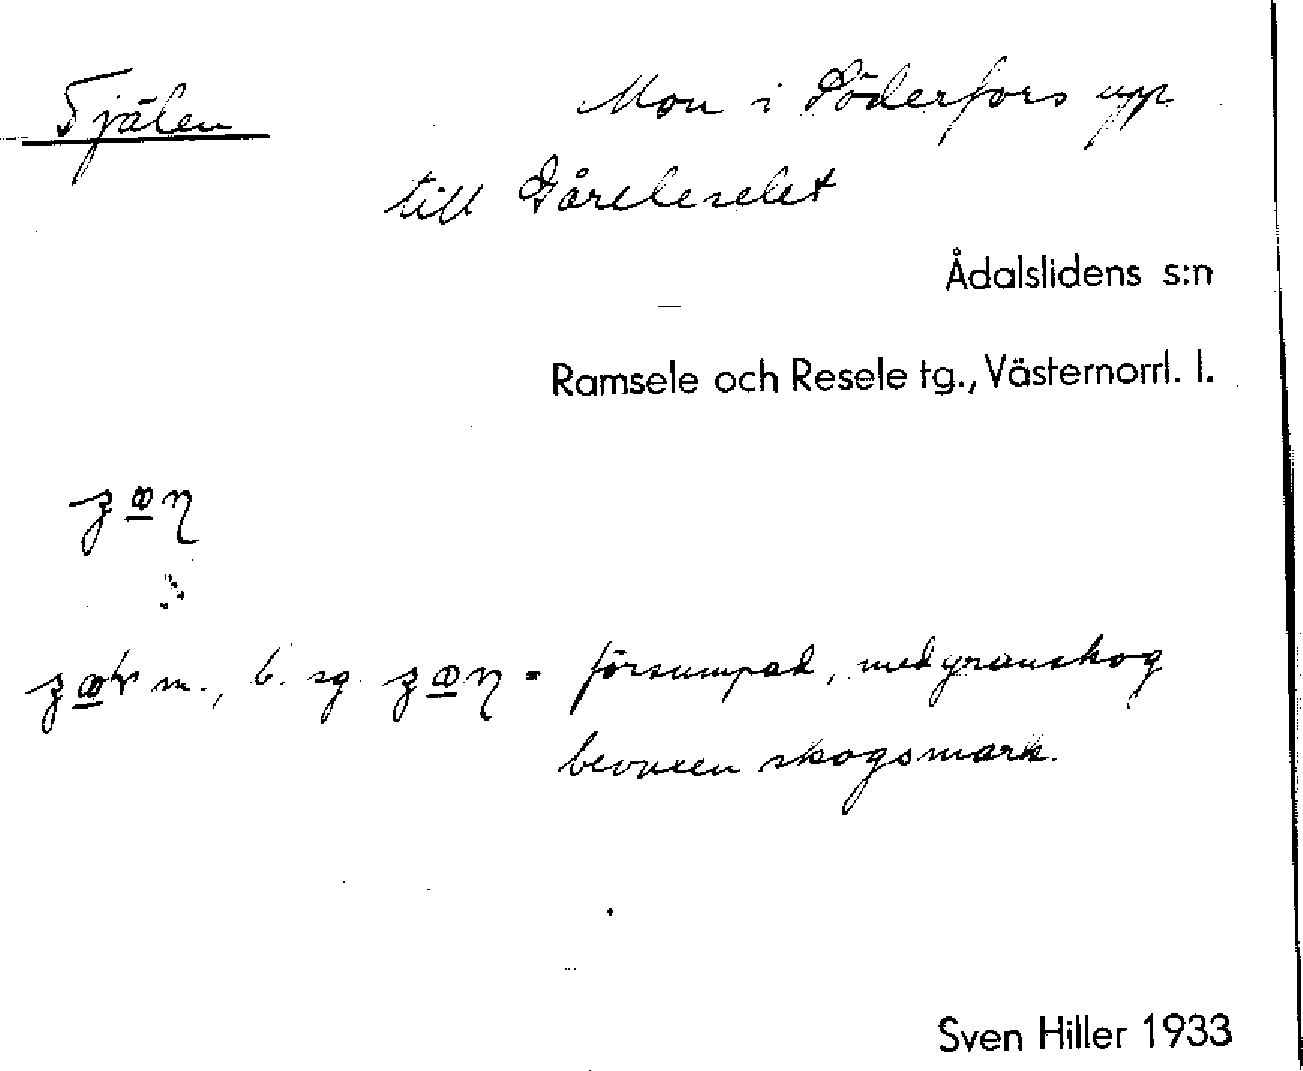 Tjälen
Mon i Söderfors upp
till Gåreleselet
Ådalslidens s:n
Ramsele och Resele tg., Västernorrl. l.
m., b. sg. = försumpad, med granskog
bevuxen skogsmark.
Sven Hiller 1933